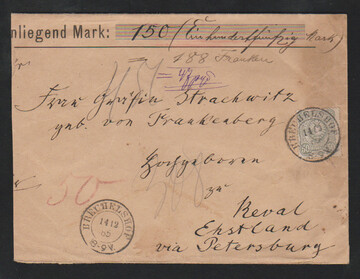 nliegend Mark: 150 (Einhundertfünfzig Mark)
188 Franken
Frau Gräfin Strachwitz
geb. von Frankenberg
Hochgeboren
zu
50
Reval
Ehstland
via Petersburg
BRECHELSHOF
14 12
8-9V
BRECHELSHOF
14 12
8-9V